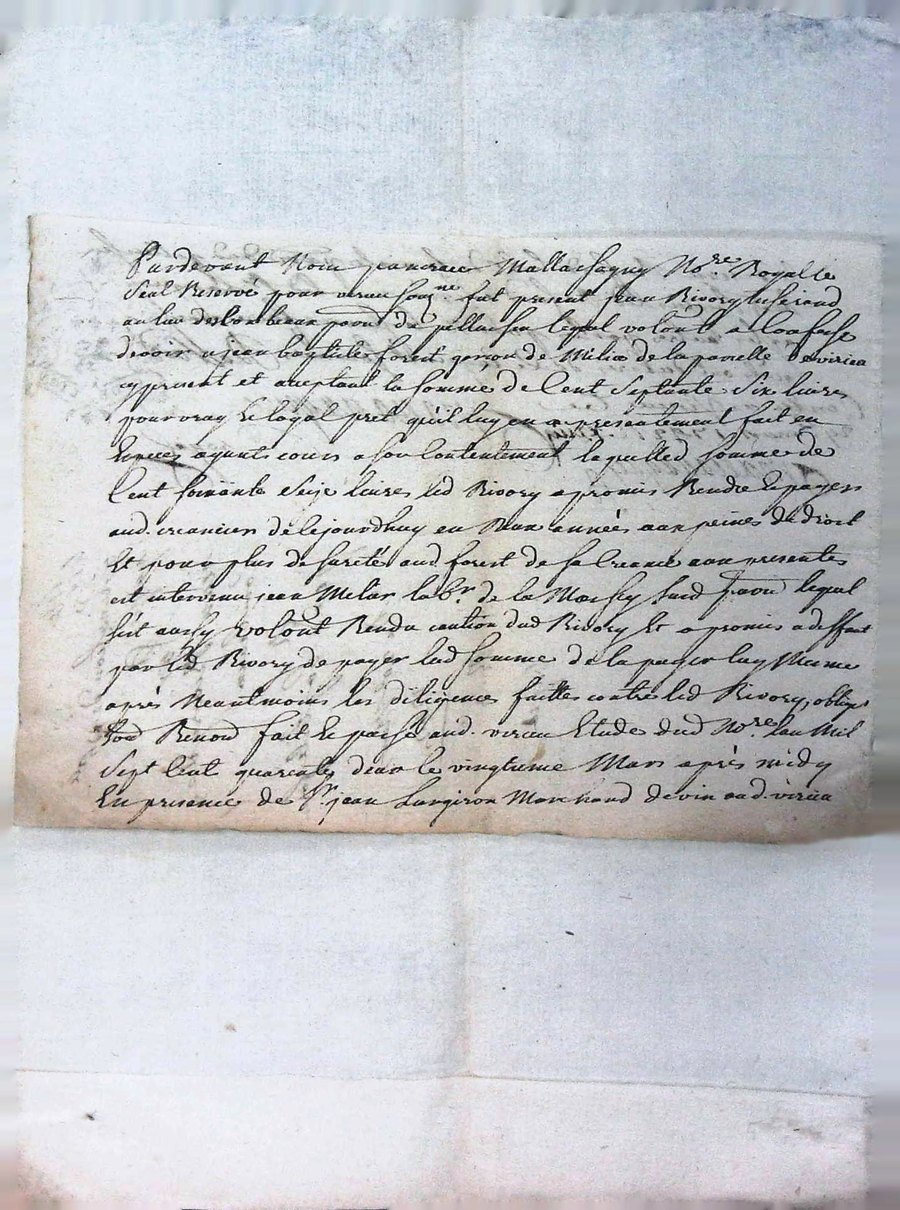 Pardevant Nous Mallassagny No.re Royal le
Seul Reservé pour virieu soug.ne fut present jean Rivory tisserand
au lieu de parr de pellussin lequel volont a confesse
devoir a jean baptiste forest garçon de Milice de la parroisse de virieu
cy present et aceptant la somme de Cent Septante Six livres
pour vray et loyal pret qu'il luy en a presentement fait en
Especes ayants cours a son Contentement laquelled somme de
Cent soixante Seize livres led Rivory a promis Rendre et payer
aud. creancier de cejourdhuy en deux années aux peines de droit
Et pour plus de sureté aud forest de sa Creance aux presentes
est intervenu jean Metar lab.r de la susd parr lequel
s'est aussy Volont Rendu caution dud Rivory Et a promis a deffaut
par led Rivory de payer lad somme de la payer luy Meme
après Neantmoins les diligences faittes contre led Rivory, oblige
soud Renond fait Et passé aud. virieu Etude dud No.re Lan Mil
Sept Cent quarente deux le vingtieme Mars après midy
En presence de Sr jean Largiron Marchand de vin aud. virieu